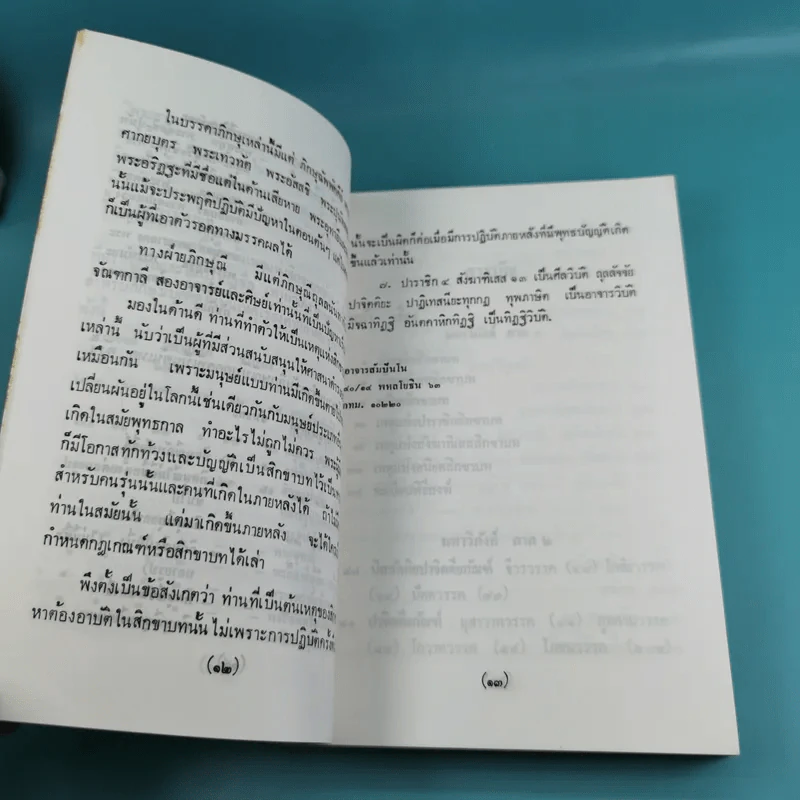 ในบรรดาภิกษุเหล่านี้มีแต่ ภิกษุฉัพพัคคีย์
ศากยบุตร พระเทวทัต พระอัสสชิ
พระอริฏฐะที่มีชื่อแต่ในด้านเสียหาย พระอุทายี
นั้นแม้จะประพฤติปฏิบัติมีปัญหาในตอนต้นๆ
ก็เป็นผู้ที่เอาตัวรอดทางมรรคผลได้
ทางฝ่ายภิกษุณี มีแต่ภิกษุณีถุลลนันทา
จัณฑกาลี สองอาจารย์และศิษย์เท่านั้นที่เป็นปัญหา
มองในด้านดี ท่านที่ทำตัวให้เป็นเหตุแห่ง
เหล่านี้ นับว่าเป็นผู้ที่มีส่วนสนับสนุนให้ศาสนา
เหมือนกัน เพราะมนุษย์แบบท่านมีเกิดขึ้น
เปลี่ยนผันอยู่ในโลกนี้เช่นเดียวกันกับมนุษย์ประเภท
เกิดในสมัยพุทธกาล ทำอะไรไม่ถูกไม่ควร
ก็มีโอกาสทักท้วงและบัญญัติเป็นสิกขาบทไว้เป็น
สำหรับคนรุ่นนั้นและคนที่เกิดในภายหลังได้
ท่านในสมัยนั้น แต่มาเกิดขึ้นภายหลัง จะได้
กำหนดกฎเกณฑ์หรือสิกขาบทได้เล่า
พึงตั้งเป็นข้อสังเกตว่า ท่านที่เป็นต้นเหตุของ
หาต้องอาบัติในสิกขาบทนั้น ไม่เพราะการปฏิบัติครั้ง
(๑๒)
นั้นจะเป็นผิดก็ต่อเมื่อมีการปฏิบัติภายหลังที่มีพุทธบัญญัติเกิด
ขึ้นแล้วเท่านั้น
๗. ปาราชิก ๔ สังฆาทิเสส ๑๓ เป็นศีลวิบัติ ถุลลัจจัย
ปาจิตตียะ ปาฏิเทสนียะทุกกฏ ทุพภาษิต เป็นอาจารวิบัติ
มิจฉาทิฏฐิ อันตคาหิกทิฏฐิ เป็นทิฏฐิวิบัติ.
อาจารสัมปันโน
๔๐/๑๔ พหลโยธิน ๖๓
กทม. ๑๐๒๒๐
(๑๓)